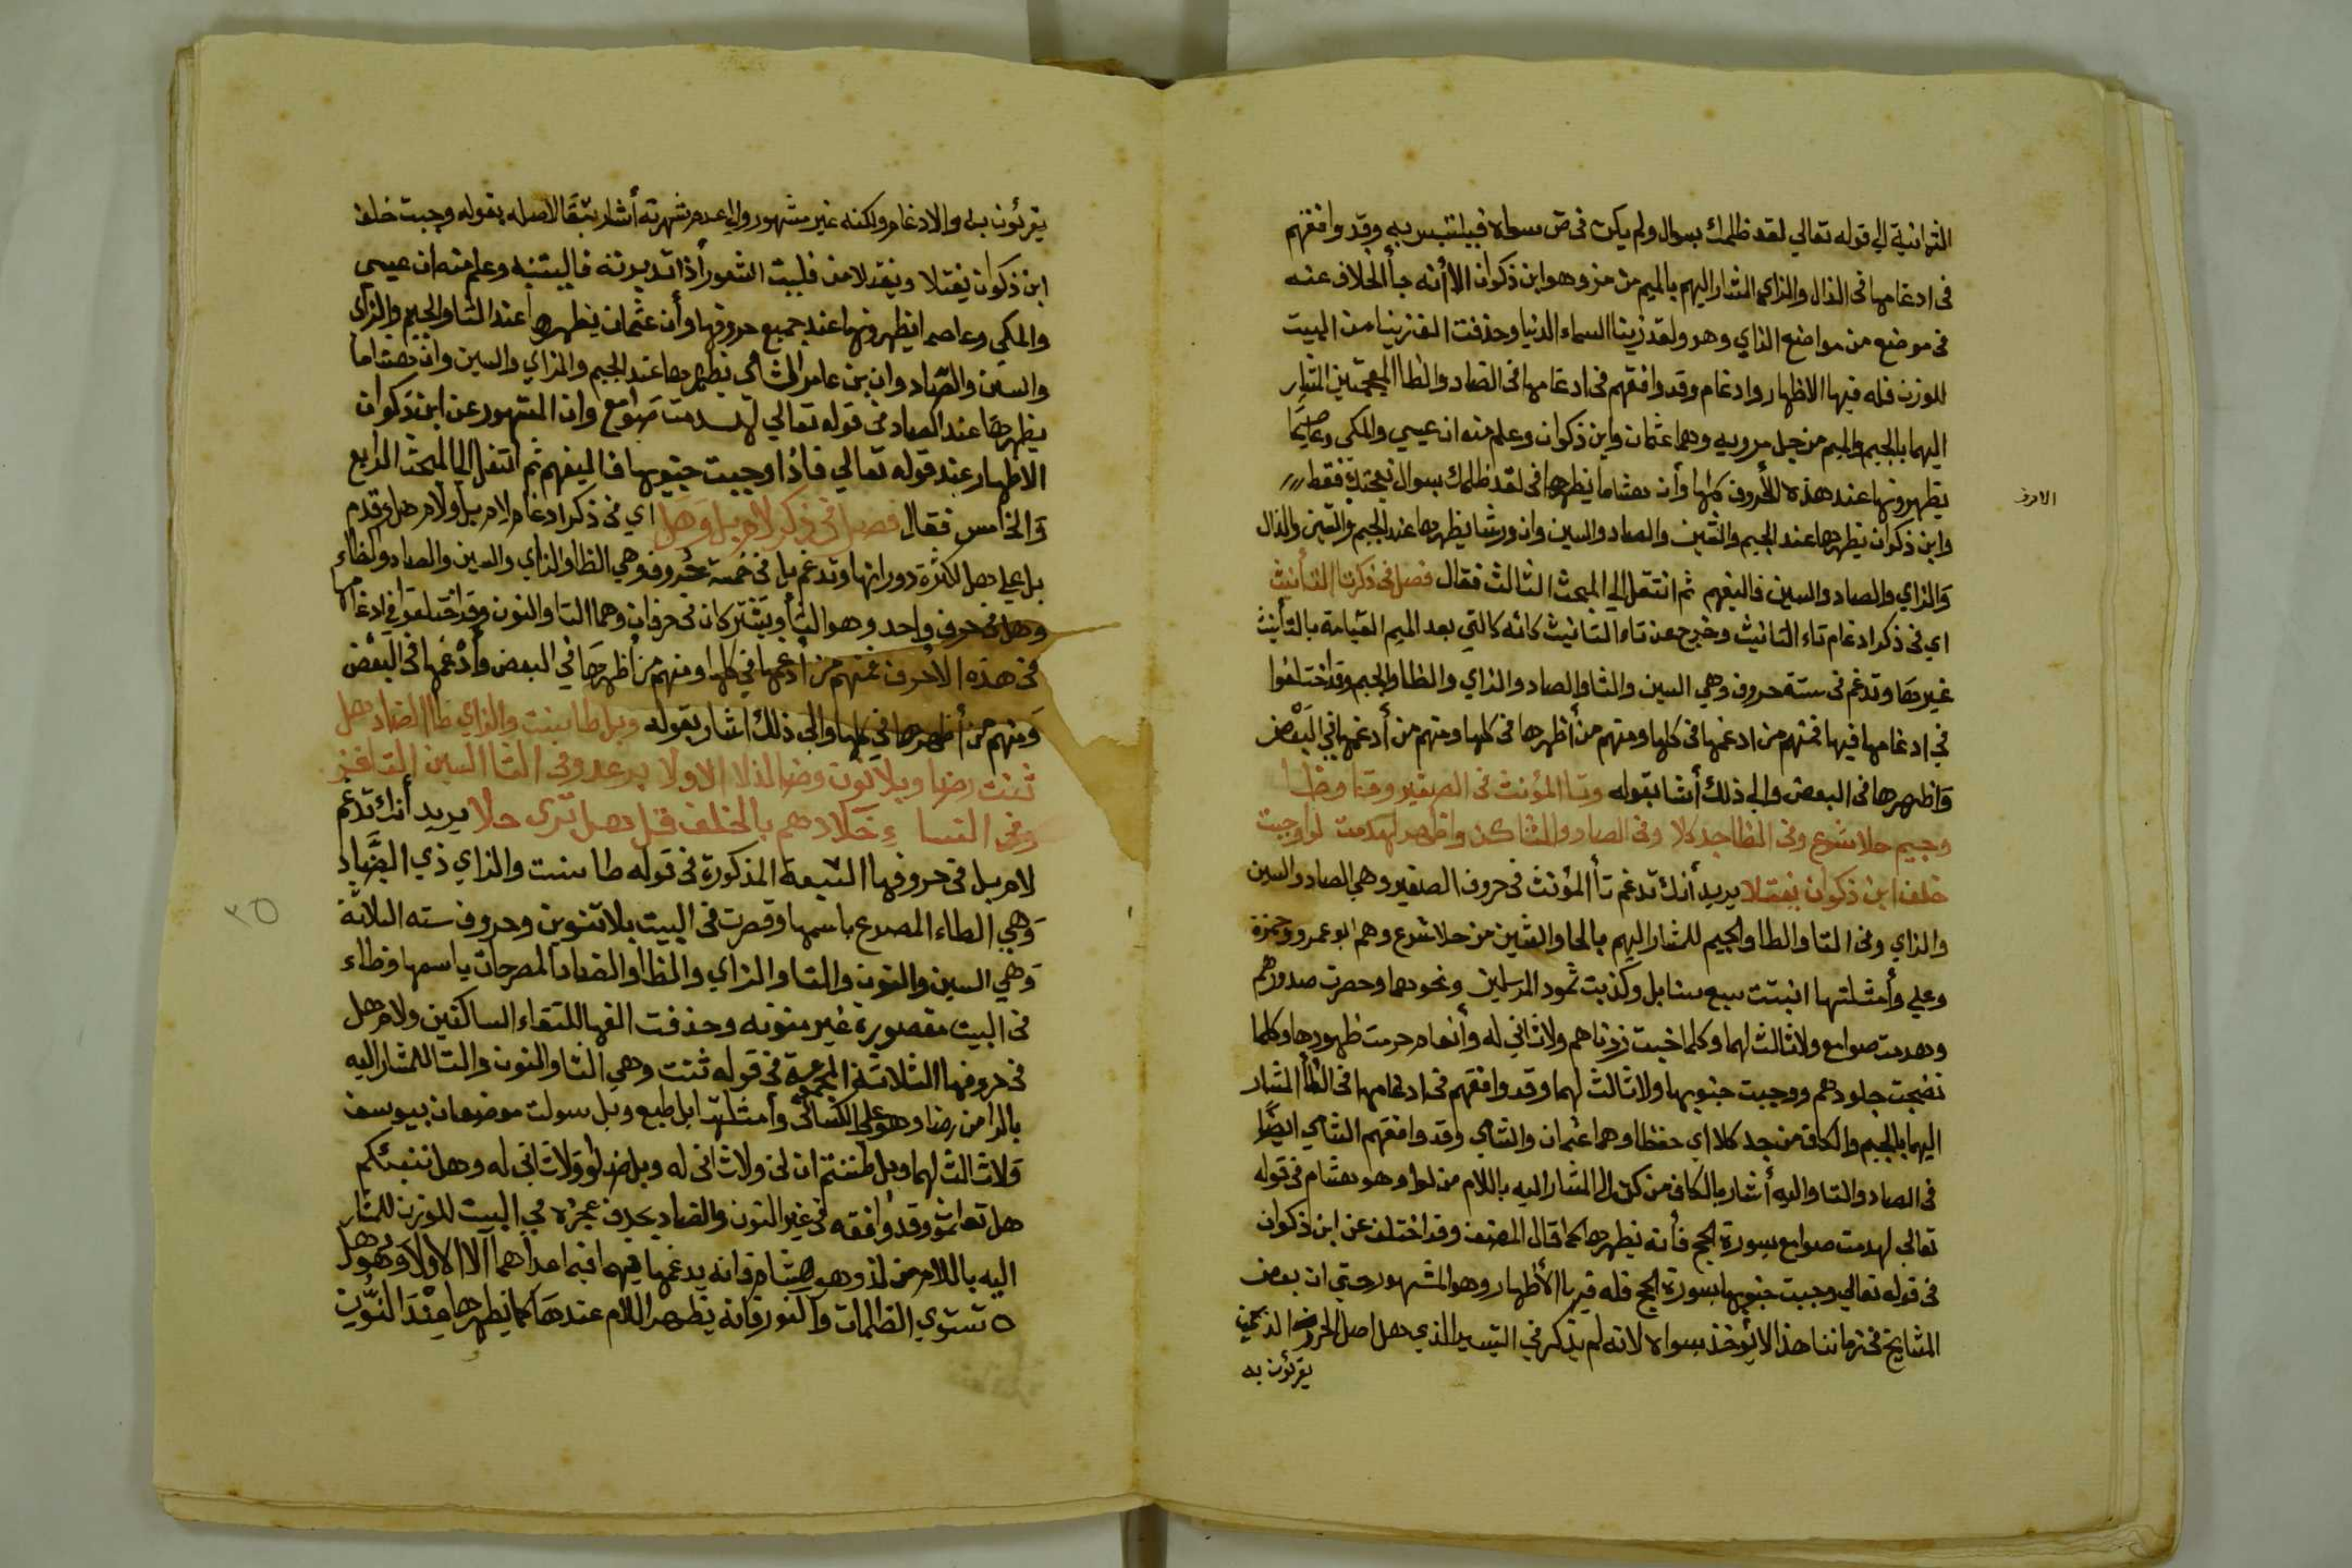 الثمانية الي قوله تعالي لقد ظلمك بسوال ولم يكن في ص سواه فيلتبس به وقد وافقهم
في ادغامها في الذال والزاي المشار اليهم بالميم من مز وهو ابن ذكوان الا أنه جأ الخلاف عنه
في موضع من مواضع الزاي وهو ولقد زينا السماء الدنيا وحذفت الف زينا من البيت
للوزن فله فيها الاظهار وادغام وقد وافقهم في ادغامها في الضاد والظا المعجمتين المشار
اليهما بالجيم والميم من جل مرويه وهما عثمان وابن ذكوان وعلم منه ان عيسي والمكي وعاصمًا
يظهرونها عند هذه الأحروف كلها وأن هشاما يظهرها في لقد ظلمك بسوال نعجتك فقط
الاحرف
وابن ذكوان يظهرها عند الجيم والشين والصاد والسين وان ورشا يظهرها عند الجيم والشين والذال
والزاي والصاد والسين فاليفهم ثم انتقل الي المبحث الثالث فقال فصل في ذكر تا التأنيث
اي في ذكر ادغام تاء التانيث وخرج عن تاء التانيث كائنه كالتي بعد الميم القيامة بالتأنيث
غيرها وتدغم في ستة حروف وهي السين والثا والصاد والزاي والظا والجيم وقد اختلفوا
في ادغامها فيها فمنهم من ادغمها في كلها ومنهم من أظهرها في كلها ومنهم من أدغمها في البعض
وَاظهرها في البعض والي ذلك أشا بقوله وتا المؤنث في الصفير وثا وظا
وجيم حلا شرع وفي الظا جد كلا وفي الصاد والثا كن واظهر لهدمت لوا وجبت
خلف ابن ذكوان يفتلا يريد أنك تدغم تأ المؤنث في حروف الصفير وهي الصاد والسين
والزاي وفي الثا والظا والجيم للمشار اليهم بالحا والشين من حلا شرع وهم ابو عمرو وحمزة
وعلي وأمثلتها انبتت سبع سنابل وكذبت ثمود المرسلين ونحوهما وحصرت صدورهم
وهدمت صوامع ولا ثالث لهما وكلما خبت زدناهم ولا ثاني له وأنعام حرمت ظهورها وكلما
نضجت جلودهم ووجبت جنوبها ولا ثالث لهما وقد وافقهم في ادغامها في الظأ المشار
اليهما بالجيم والكاف من جد كلا اي حفظا وهما عثمان والشامي وقد وافقهم الشامي ايضًا
في الصاد والثا واليه أشار بالكاف من كن الا المشار اليه باللام من لوا وهو هشام في قوله
تعالي لهدمت صوامع بسورة الحج فأنه يظهرها كما قال المصنف وقد اختلف عن ابن ذكوان
في قوله تعالي وجبت جنوبها بسورة الحج فله فيها الأظهار وهو المشهور حتي ان بعض
المشايخ في زماننا هذا لا يؤخذ بسواه لانه لم يذكر في التيسير الذي هل اصل الحرز الذين
يقرئون به
يقرئون به والادغام ولكنه غير مشهور والي عدم شهرته أشار تبعًا لاصله بقوله وجبت خلف
ابن ذكوان يفتلا ويفتلا من فليت الشعر أذا تدبرته فاليتنبه وعلم منه ان عيسي
والمكي وعاصما يظهرونها عند جميع حروفها وأن عثمان يظهرها عند الثا والجيم والزاي
والسين والصاد وان بن عامر الشامي يظهرها عند الجيم والزاي والسين وان هشاما
يظهرها عند الصاد في قوله تعالي لهدمت صوامع وان المشهور عن ابن ذكوان
الاظهار عند قوله تعالي فاذا وجبت جنوبها فاليفهم ثم انتقل الي المبحث الرابع
وَالخامس فقال فصل في ذكر لام بل وهل اي في ذكر ادغام لام بل ولام هل وقدم
بل علي هل لكثرة دورانها وتدغم بل في خمسة حروف وهي الظا والزاي والسين والضاد والطاء
وهل في حرف واحد وهو الثأ ويشتركان في حرفان وهما التا والنون وقد اختلفوا في ادغامها
في هذه الأحرف فمنهم من أدغمها في كلها ومنهم من أظهرها في البعض وأدغمها في البعض
وَمنهم من أظهرها في كلها والي ذلك اشار بقوله وبل طا بينت والزاي ظا الضاد هل
ثنت رضا وبلا نون وضاد لذا الا ولا برعد وفي الثا السين التا فز
وفي النساء خلادهم بالخلف قل هل تري حلا يريد أنك تدغم
لام بل في حروفها السبعة المذكورة في قوله طا سنت والزاي ذي الضَّاد
وَهي الطاء المصرع باسمها وقصرت في البيت بلا تنوين وحروف سته الثلاثة
وَهي السين والنون والتا والزاي والظا والضاد المصرحات باسمها وظاء
في البيت مقصورة غير منونه وحذفت الفها للتقاء الساكنين ولام هل
في حروفها الثلاثة المجموعة في قوله ثنت وهي الثا والنون والتا للمشار اليه
بالرا من رضا وهو علي الكسائي وأمثلتها بل طبع وبل سولت موضعان بيوسف
وَلا ثالث لهما وبل ظننتم ان لن ولا ثاني له وبل ضلوا ولا ثاني له وهل ننبئكم
هل تعلم وقد وافقه في غير النون والضاد بحذف عجزه في البيت للوزن للمشار
اليه باللام من لذ وهو هشام فانه يدغمها فيهما فيما عداهما الا الاولا وهو هل
تستوي الظلمات والنور فانه يظهر اللام عندها كما يظهرها عِنْدَ النُّون
٢٥